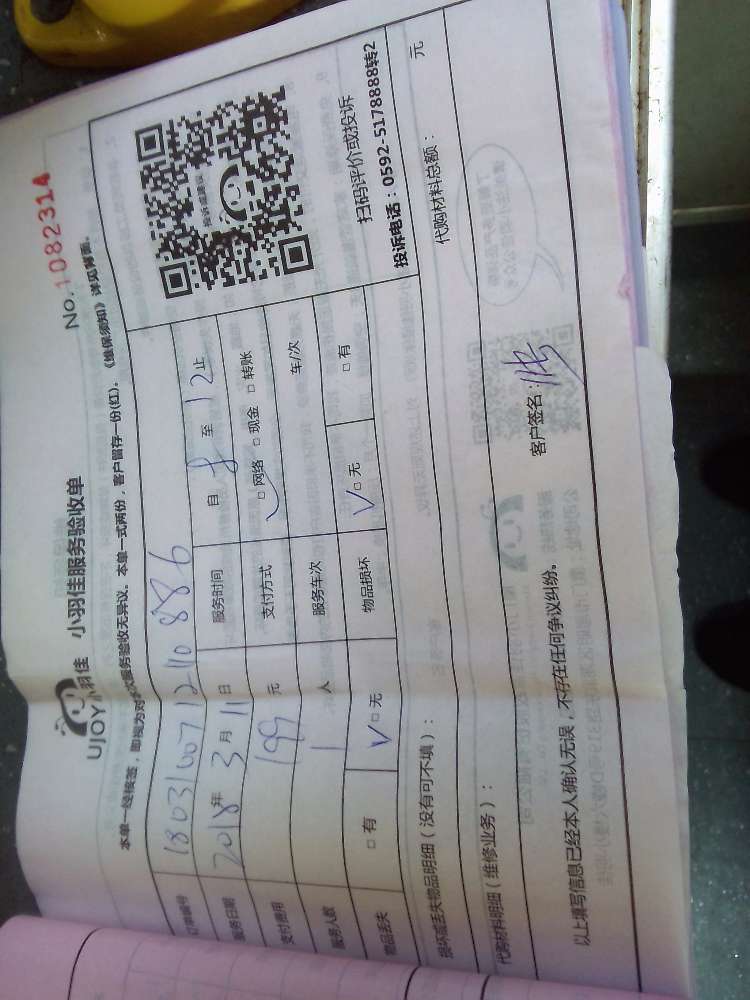 UJOY小羽佳 小羽佳服务验收单
No.1082314
本单一经核签，即视为对本次服务验收无异议。本单一式两份，客户留存一份(红)。《维保须知》详见背面。
订单编号 18031007 12 40 886
服务日期 2018年3月11日 服务时间 自 8 至 12止
支付费用 199 元 支付方式 □网络 □现金 □转账
服务人数 1 人 服务车次 车/次
物品丢失 □有 √□无 物品损坏 √□无 □有
投诉或建议
扫码评价或投诉
投诉电话：0592-5178888转2
损坏或丢失物品明细（没有可不填）：
代购材料明细（维修业务）： 代购材料总额： 元
以上填写信息已经本人确认无误，不存在任何争议纠纷。 客户签名：